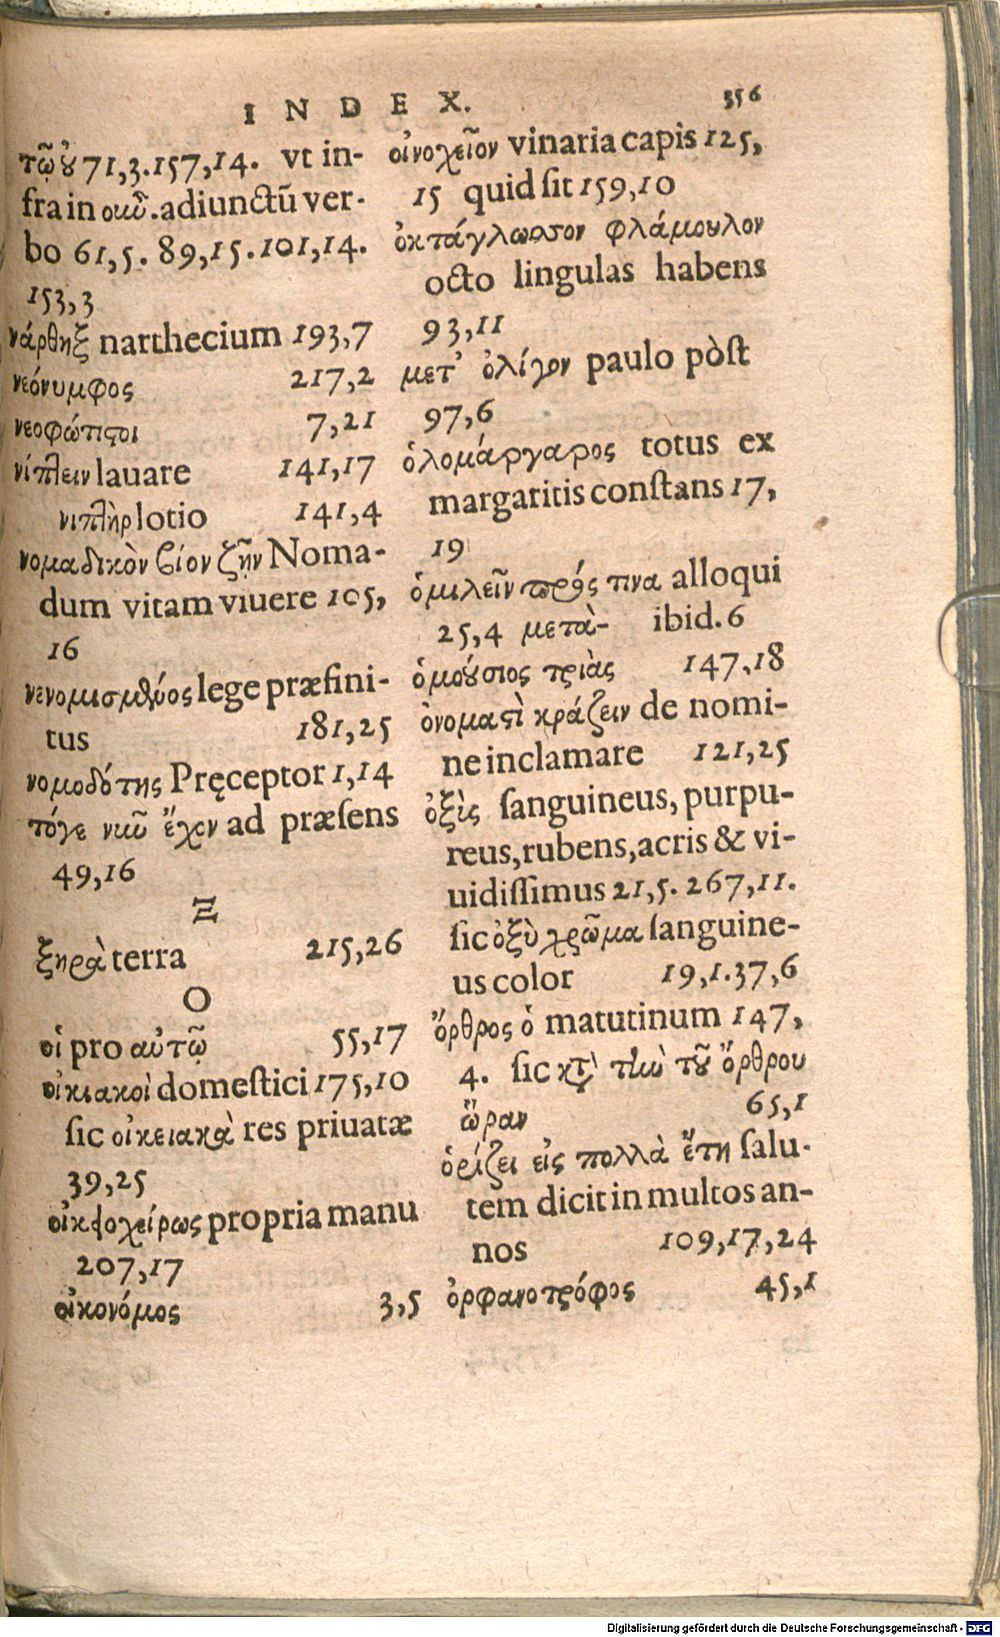 INDEX. 356
71,3.157,14. vt in-
fra in σκῦ. adiunctũ ver-
bo 61,5. 89,15.101,14.
153,3
νάρθηξ narthecium 193,7
νεόνυμφος 217,2
νεοφώτιστοι 7,21
νίπτειν lauare 141,17
νιπτὴρ lotio 141,4
νομαδικὸν βίον ζῆν Noma-
dum vitam viuere 105,
16
νενομισμένος lege præfini-
tus 181,25
νομοδότης Pręceptor 1,14
τόγε νυῦ ἔχον ad præsens
49,16
Ξ
ξηρὰ terra 215,26
Ο
οἱ pro αὐτῷ 55,17
οἰκιακοὶ domestici 175,10
sic οἰκειακὰ res priuatæ
39,25
οἰκειοχείρως propria manu
207,17
οἰκονόμος 3,5
οἰνοχεῖον vinaria capis 125,
15 quid sit 159,10
ὀκτάγλωσσον φλάμουλον
octo lingulas habens
93,11
μετ' ὀλίγον paulo pòst
97,6
ὁλομάργαρος totus ex
margaritis constans 17,
19
ὁμιλεῖν πρός τινα alloqui
25,4 μετὰ- ibid. 6
ὁμούσιος τριὰς 147,18
ὀνομαστὶ κράζειν de nomi-
ne inclamare 121,25
ὀξὶς sanguineus, purpu-
reus, rubens, acris & vi-
uidissimus 21,5. 267,11.
sic ὀξὺ χρῶμα sanguine-
us color 19,1.37,6
ὄρθρος ὁ matutinum 147,
4. sic κατὰ τὴν τοῦ ὄρθρου
ὥραν 65,1
ὁρίζει εἰς πολλὰ ἔτη salu-
tem dicit in multos an-
nos 109,17,24
ὀρφανοτρόφος 45,1
Digitalisierung gefördert durch die Deutsche Forschungsgemeinschaft - DFG